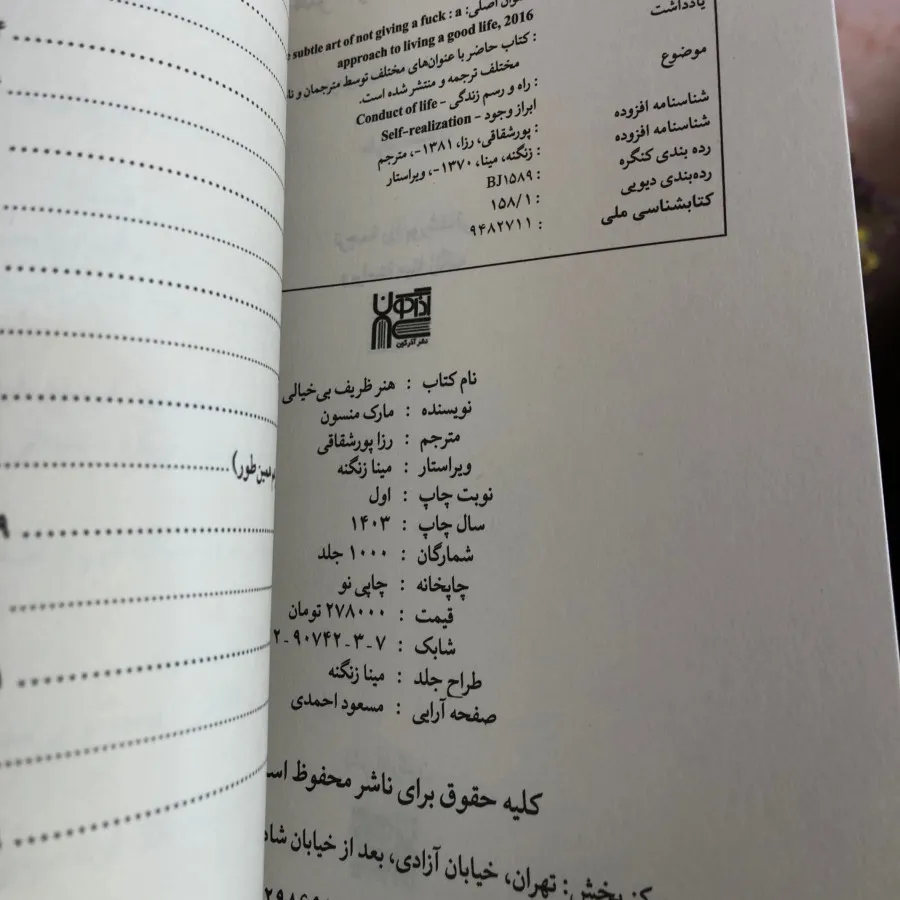 یادداشت
عنوان اصلی: subtle art of not giving a fuck : a
approach to living a good life, 2016
: کتاب حاضر با عنوان‌های مختلف توسط مترجمان و
مختلف ترجمه و منتشر شده است.
موضوع : راه و رسم زندگی - Conduct of life
ابراز وجود - Self-realization
شناسنامه افزوده : پورشقاقی، رزا، ۱۳۸۱-، مترجم
شناسنامه افزوده : زنگنه، مینا، ۱۳۷۰-، ویراستار
رده بندی کنگره : BJ۱۵۸۹
رده‌بندی دیویی : ۱۵۸/۱
کتابشناسی ملی : ۹۴۸۲۷۱۱
آذرگون
نشر آذرگون
نام کتاب : هنر ظریف بی‌خیالی
نویسنده : مارک منسون
مترجم : رزا پورشقاقی
ویراستار : مینا زنگنه
نوبت چاپ : اول
سال چاپ : ۱۴۰۳
شمارگان : ۱۰۰۰ جلد
چاپخانه : چاپی نو
قیمت : ۲۷۸۰۰۰ تومان
شابک : ۲-۹۰۷۴۲-۳-۷
طراح جلد : مینا زنگنه
صفحه آرایی : مسعود احمدی
کلیه حقوق برای ناشر محفوظ
پخش: تهران، خیابان آزادی، بعد از خیابان
همین‌طور)